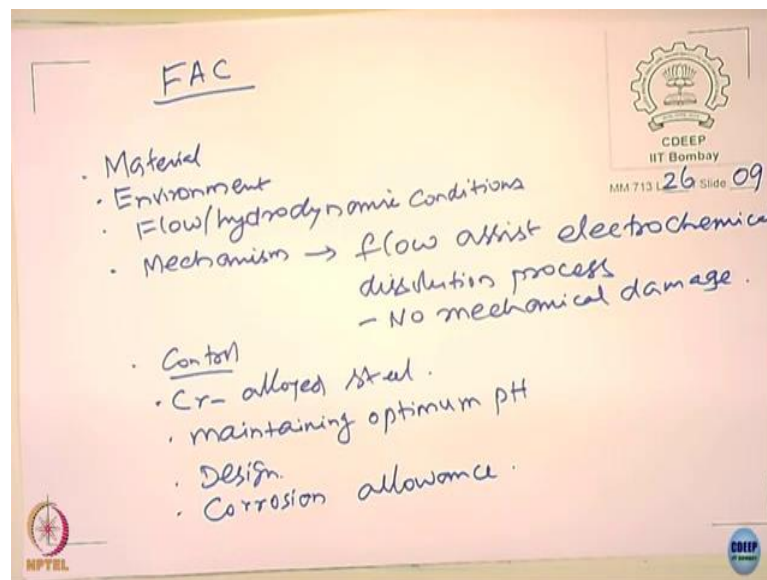 FAC
CDEEP
IIT Bombay
MM 713 L 26 Slide 09
· Material
· Environment
· Flow/hydrodynamic conditions
· Mechanism → flow assist electrochemica
dissolution process
- No mechanical damage.
· Control
· Cr- alloyed steel.
· maintaining optimum pH
· Design.
· Corrosion allowance.
NPTEL
CDEEP